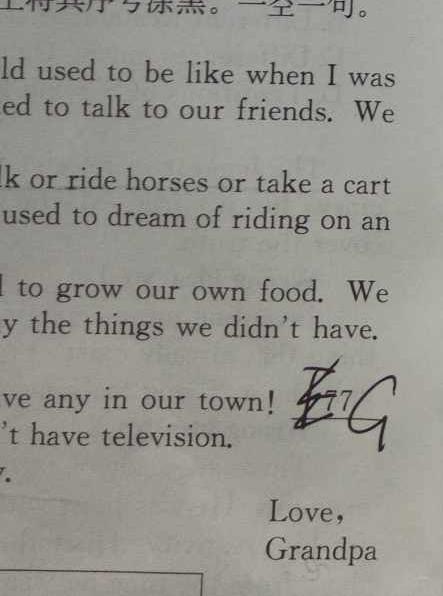 上将其序号涂黑。一空一句。
ld used to be like when I was
ed to talk to our friends. We
lk or ride horses or take a cart
used to dream of riding on an
to grow our own food. We
y the things we didn't have.
ve any in our town! 77 G
't have television.
y.
Love,
Grandpa